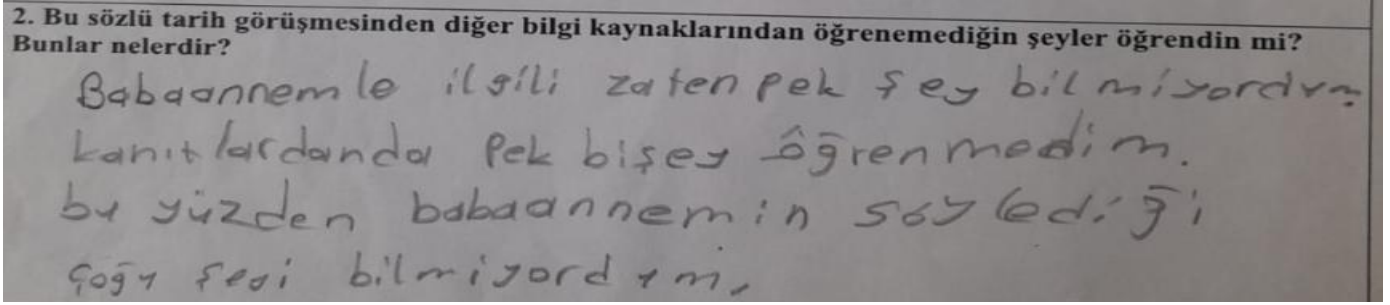 2. Bu sözlü tarih görüşmesinden diğer bilgi kaynaklarından öğrenemediğin şeyler öğrendin mi?
Bunlar nelerdir?
Babaannemle ilgili zaten pek şey bilmiyordum
kanıtlardanda pek bişey öğrenmedim.
bu yüzden babaannemin söylediği
çoğu şeyi bilmiyordum.